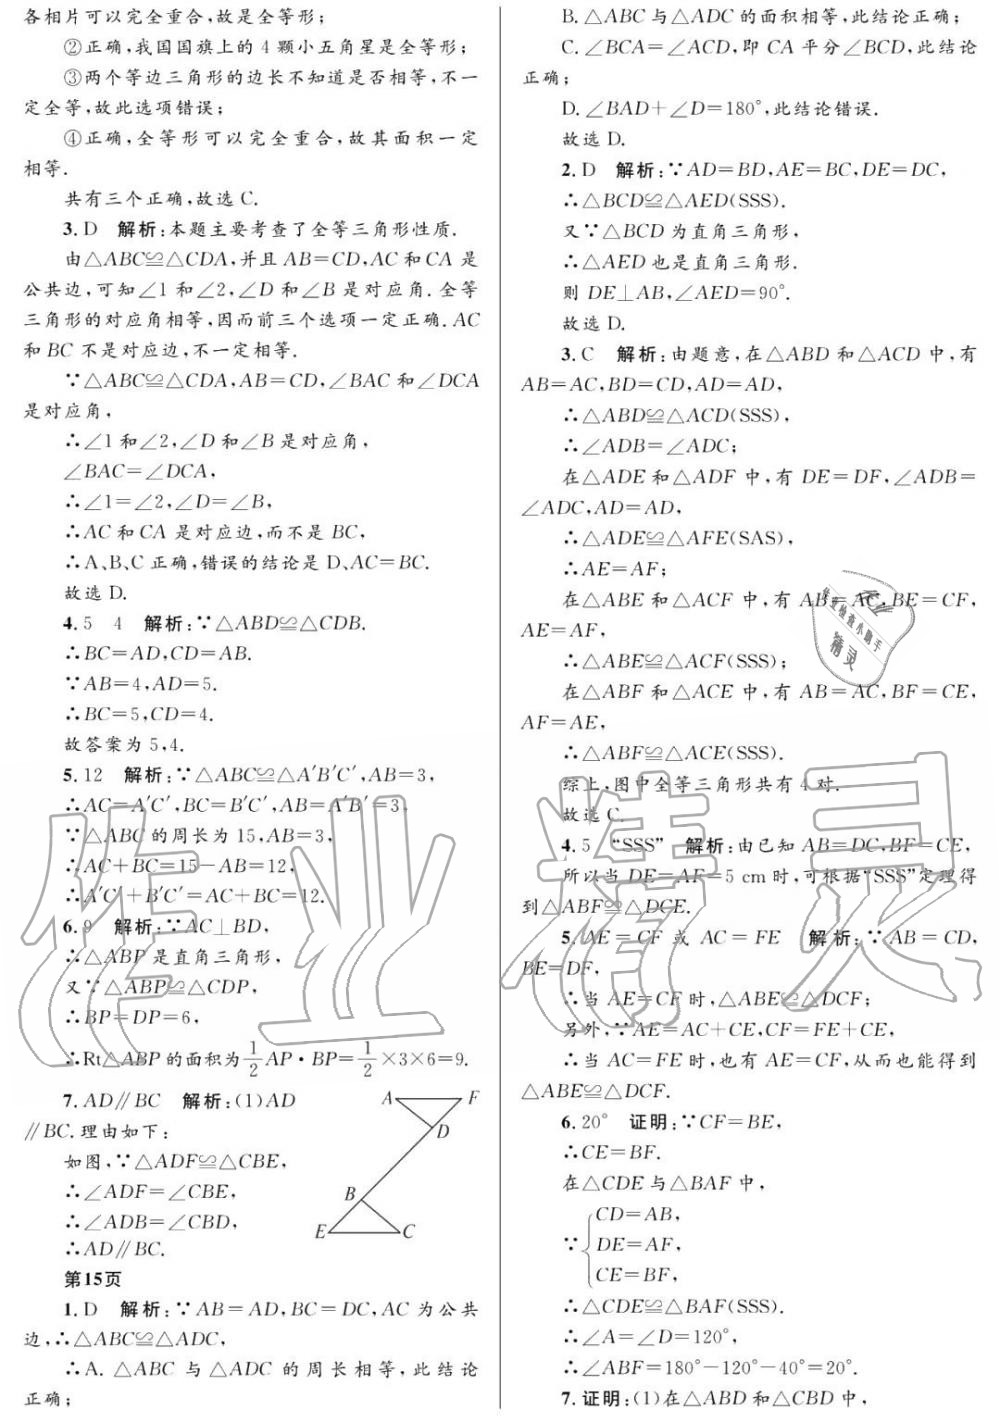 各相片可以完全重合,故是全等形;
②正确,我国国旗上的 4 颗小五角星是全等形;
③两个等边三角形的边长不知道是否相等,不一
定全等,故此选项错误;
④正确,全等形可以完全重合,故其面积一定
相等.
共有三个正确,故选 C.
3. D 解析:本题主要考查了全等三角形性质.
由△ABC≌△CDA,并且 AB=CD,AC 和 CA 是
公共边,可知∠1 和∠2,∠D 和∠B 是对应角.全等
三角形的对应角相等,因而前三个选项一定正确.AC
和 BC 不是对应边,不一定相等.
∵△ABC≌△CDA,AB=CD,∠BAC 和∠DCA
是对应角,
∴∠1 和∠2,∠D 和∠B 是对应角,
∠BAC=∠DCA,
∴∠1=∠2,∠D=∠B,
∴AC 和 CA 是对应边,而不是 BC,
∴A、B、C 正确,错误的结论是 D、AC=BC.
故选 D.
4. 5 4 解析:∵△ABD≌△CDB.
∴BC=AD,CD=AB.
∵AB=4,AD=5.
∴BC=5,CD=4.
故答案为 5,4.
5. 12 解析:∵△ABC≌△A′B′C′,AB=3,
∴AC=A′C′,BC=B′C′,AB=A′B′=3,
∵△ABC 的周长为 15,AB=3,
∴AC+BC=15-AB=12,
∴A′C′+B′C′=AC+BC=12.
6. 9 解析:∵AC⊥BD,
∴△ABP 是直角三角形,
又∵△ABP≌△CDP,
∴BP=DP=6,
∴Rt△ABP 的面积为 1/2 AP·BP=1/2×3×6=9.
7. AD∥BC 解析:(1)AD
∥BC.理由如下:
如图,∵△ADF≌△CBE,
∴∠ADF=∠CBE,
∴∠ADB=∠CBD,
∴AD∥BC.
A F
D
B
E C
第15页
1. D 解析:∵AB=AD,BC=DC,AC 为公共
边,∴△ABC≌△ADC,
∴A. △ABC 与△ADC 的周长相等,此结论
正确;
B. △ABC 与△ADC 的面积相等,此结论正确;
C. ∠BCA=∠ACD,即 CA 平分∠BCD,此结论
正确;
D. ∠BAD+∠D=180°,此结论错误.
故选 D.
2. D 解析:∵AD=BD,AE=BC,DE=DC,
∴△BCD≌△AED(SSS).
又∵△BCD 为直角三角形,
∴△AED 也是直角三角形.
则 DE⊥AB,∠AED=90°.
故选 D.
3. C 解析:由题意,在△ABD 和△ACD 中,有
AB=AC,BD=CD,AD=AD,
∴△ABD≌△ACD(SSS),
∴∠ADB=∠ADC;
在△ADE 和△ADF 中,有 DE=DF,∠ADB=
∠ADC,AD=AD,
∴△ADE≌△AFE(SAS),
∴AE=AF;
在△ABE 和△ACF 中,有 AB=AC,BE=CF,
AE=AF,
∴△ABE≌△ACF(SSS);
在△ABF 和△ACE 中,有 AB=AC,BF=CE,
AF=AE,
∴△ABF≌△ACE(SSS).
综上,图中全等三角形共有 4 对.
故选 C.
4. 5 “SSS” 解析:由已知 AB=DC,BF=CE,
所以当 DE=AF=5 cm 时,可根据“SSS”定理得
到△ABF≌△DCE.
5. AE=CF 或 AC=FE 解析:∵AB=CD,
BE=DF,
∴当 AE=CF 时,△ABE≌△DCF;
另外,∵AE=AC+CE,CF=FE+CE,
∴当 AC=FE 时,也有 AE=CF,从而也能得到
△ABE≌△DCF.
6. 20° 证明:∵CF=BE,
∴CE=BF.
在△CDE 与△BAF 中,
CD=AB,
∵ DE=AF,
CE=BF,
∴△CDE≌△BAF(SSS).
∴∠A=∠D=120°,
∴∠ABF=180°-120°-40°=20°.
7. 证明:(1)在△ABD 和△CBD 中,
作业精灵
作业检查小助手
精灵